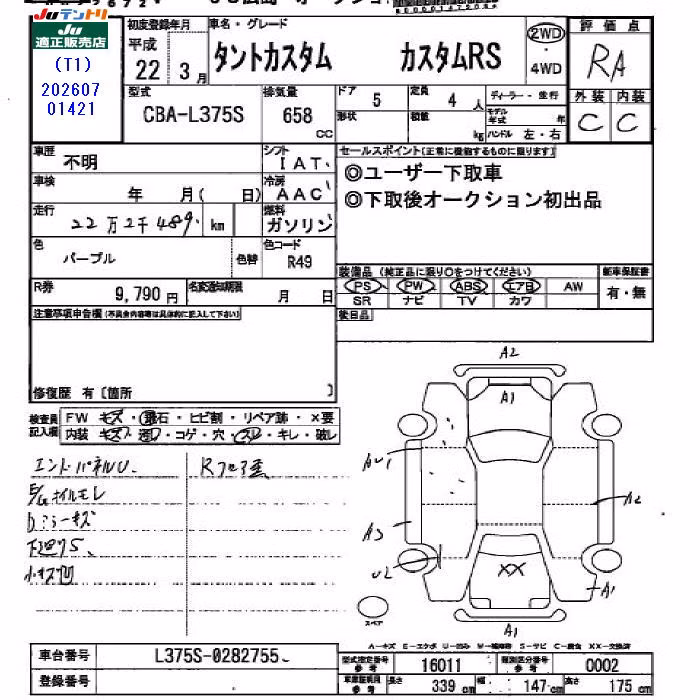 JUテントリ
JU
適正販売店
(T1)
202607
01421
初度登録年月
平成
22 3月
車名・グレード
タントカスタム カスタムRS
2WD
4WD
評価点
RA
外装 内装
C C
型式
CBA-L375S
排気量
658
cc
ドア 5
定員 4 人
ディーラー・並行
形状
積載 kg
モデル年式 年
ハンドル 左・右
車歴
不明
シフト
IAT
セールスポイント(正常に機能するものに限ります)
◎ユーザー下取車
◎下取後オークション初出品
車検
年 月( 日)
冷房
AAC
走行
22万2千489 km
燃料
ガソリン
色
パープル
色替
色コード
R49
装備品(純正品に限り○をつけてください)
新車保証書
PS PW ABS エアB AW
SR ナビ TV カワ
有・無
R券
9,790円
名変通知期限
月 日
後日品
注意事項申告欄(不具合内容等は具体的に記入して下さい)
修復歴 有〔箇所 〕
検査員記入欄
FW キズ・飛石・ヒビ割・リペア跡・×要
内装 キズ・汚レ・コゲ・穴・スレ・キレ・破レ
エンドパネルU
E/Gオイルモレ
小キズ凹
A2
A1
AU1
A2
A3
U2
XX
A1
A1
スペア
A-キズ E-エクボ U-凹み W-補修跡 S-サビ C-腐食 XX-交換済
車台番号
L375S-0282755
登録番号
型式指定番号 参考
16011
類別区分番号 参考
0002
車庫証明用 参考
長さ 339 cm
幅 147 cm
高さ 175 cm